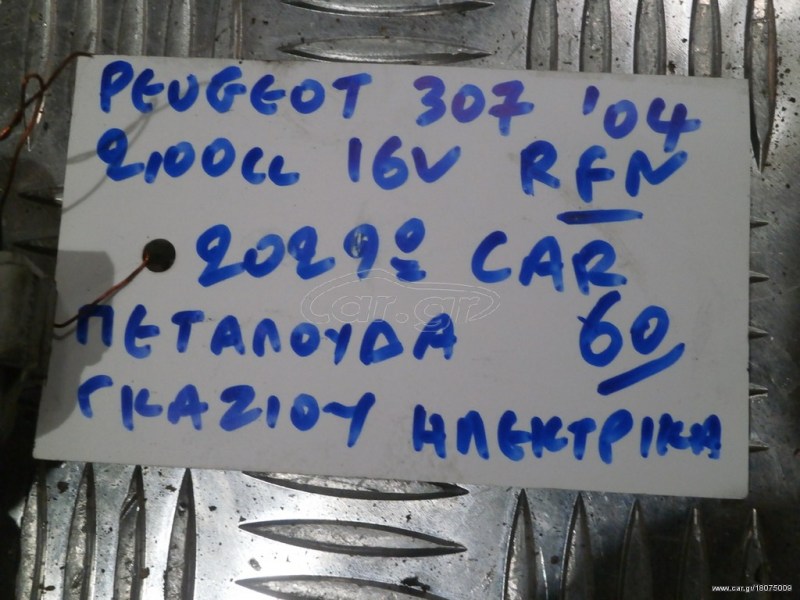 PEUGEOT 307 '04
2,00cc 16V RFN
2029º CAR
ΠΕΤΑΛΟΥΔΑ 60
ΓΚΑΖΙΟΥ ΗΛΕΚΤΡΙΚΑ
car.gr
www.car.gr/18075009